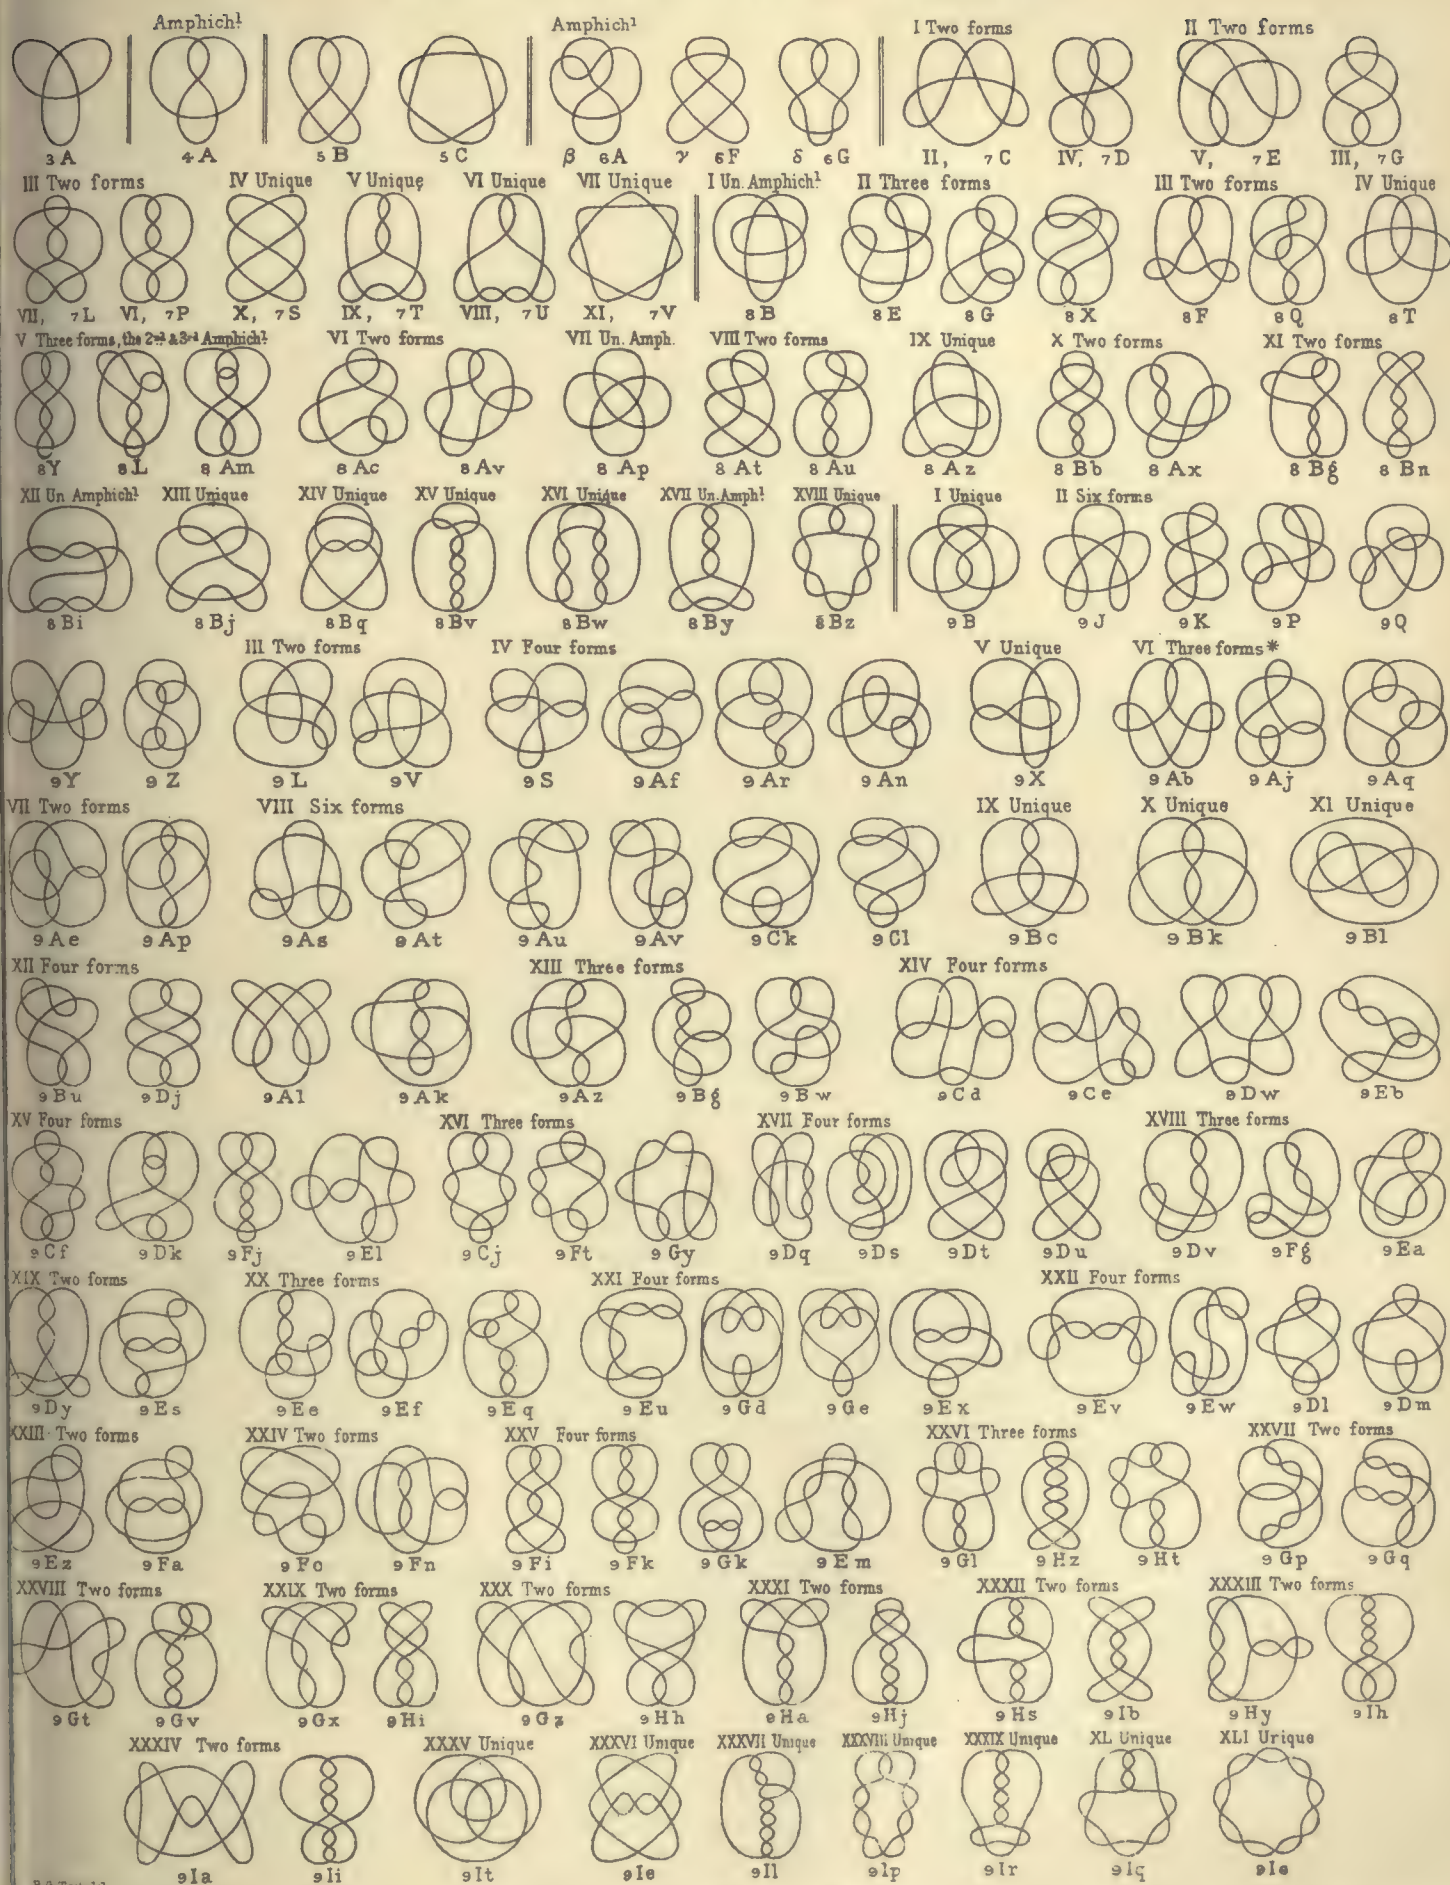 Amphich.l Amphich1 I Two forms II Two forms
3 A 4 A 5 B 5 C β 6A γ 6F δ 6G II, 7C IV, 7D V, 7E III, 7G
III Two forms IV Unique V Unique VI Unique VII Unique I Un. Amphich.l II Three forms III Two forms IV Unique
VII, 7L VI, 7P X, 7S IX, 7T VIII, 7U XI, 7V 8B 8E 8G 8X 8F 8Q 8T
V Three forms, the 2nd & 3rd Amphich.l VI Two forms VII Un. Amph. VIII Two forms IX Unique X Two forms XI Two forms
8Y 8L 8 Am 8 Ac 8 Av 8 Ap 8 At 8 Au 8 Az 8 Bb 8 Ax 8 Bg 8 Bn
XII Un Amphich.l XIII Unique XIV Unique XV Unique XVI Unique XVII Un. Amph.l XVIII Unique I Unique II Six forms
8 Bi 8 Bj 8 Bq 8 Bv 8 Bw 8 By 8 Bz 9 B 9 J 9 K 9 P 9 Q
III Two forms IV Four forms V Unique VI Three forms*
9 Y 9 Z 9 L 9 V 9 S 9 Af 9 Ar 9 An 9 X 9 Ab 9 Aj 9 Aq
VII Two forms VIII Six forms IX Unique X Unique XI Unique
9 Ae 9 Ap 9 As 9 At 9 Au 9 Av 9 Ck 9 Cl 9 Bc 9 Bk 9 Bl
XII Four forms XIII Three forms XIV Four forms
9 Bu 9 Dj 9 Al 9 Ak 9 Az 9 Bg 9 Bw 9 Cd 9 Ce 9 Dw 9 Eb
XV Four forms XVI Three forms XVII Four forms XVIII Three forms
9 Cf 9 Dk 9 Fj 9 El 9 Cj 9 Ft 9 Gy 9 Dq 9 Ds 9 Dt 9 Du 9 Dv 9 Fg 9 Ea
XIX Two forms XX Three forms XXI Four forms XXII Four forms
9 Dy 9 Es 9 Ee 9 Ef 9 Eq 9 Eu 9 Gd 9 Ge 9 Ex 9 Ev 9 Ew 9 Dl 9 Dm
XXIII Two forms XXIV Two forms XXV Four forms XXVI Three forms XXVII Two forms
9 Ez 9 Fa 9 Fo 9 Fn 9 Fi 9 Fk 9 Gk 9 Em 9 Gl 9 Hz 9 Ht 9 Gp 9 Gq
XXVIII Two forms XXIX Two forms XXX Two forms XXXI Two forms XXXII Two forms XXXIII Two forms
9 Gt 9 Gv 9 Gx 9 Hi 9 Gz 9 Hh 9 Ha 9 Hj 9 Hs 9 Ib 9 Hy 9 Ih
XXXIV Two forms XXXV Unique XXXVI Unique XXXVII Unique XXXVIII Unique XXXIX Unique XL Unique XLI Unique
9 Ia 9 Ii 9 It 9 Ie 9 Il 9 Ip 9 Ir 9 Iq